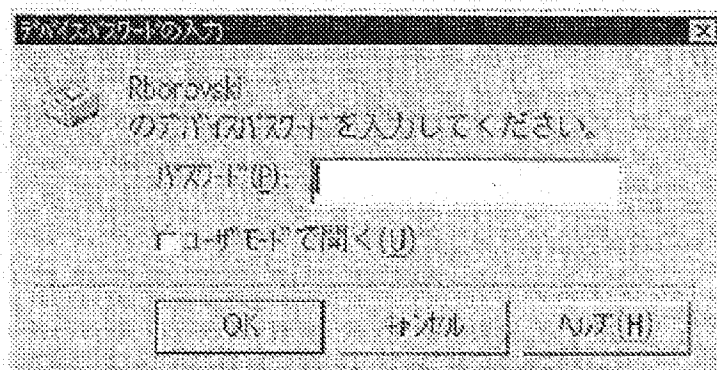 デバイスパスワードの入力
Rborovski
のデバイスパスワードを入力してください。
パスワード(P):
ユーザモードで開く(U)
OK キャンセル ヘルプ(H)